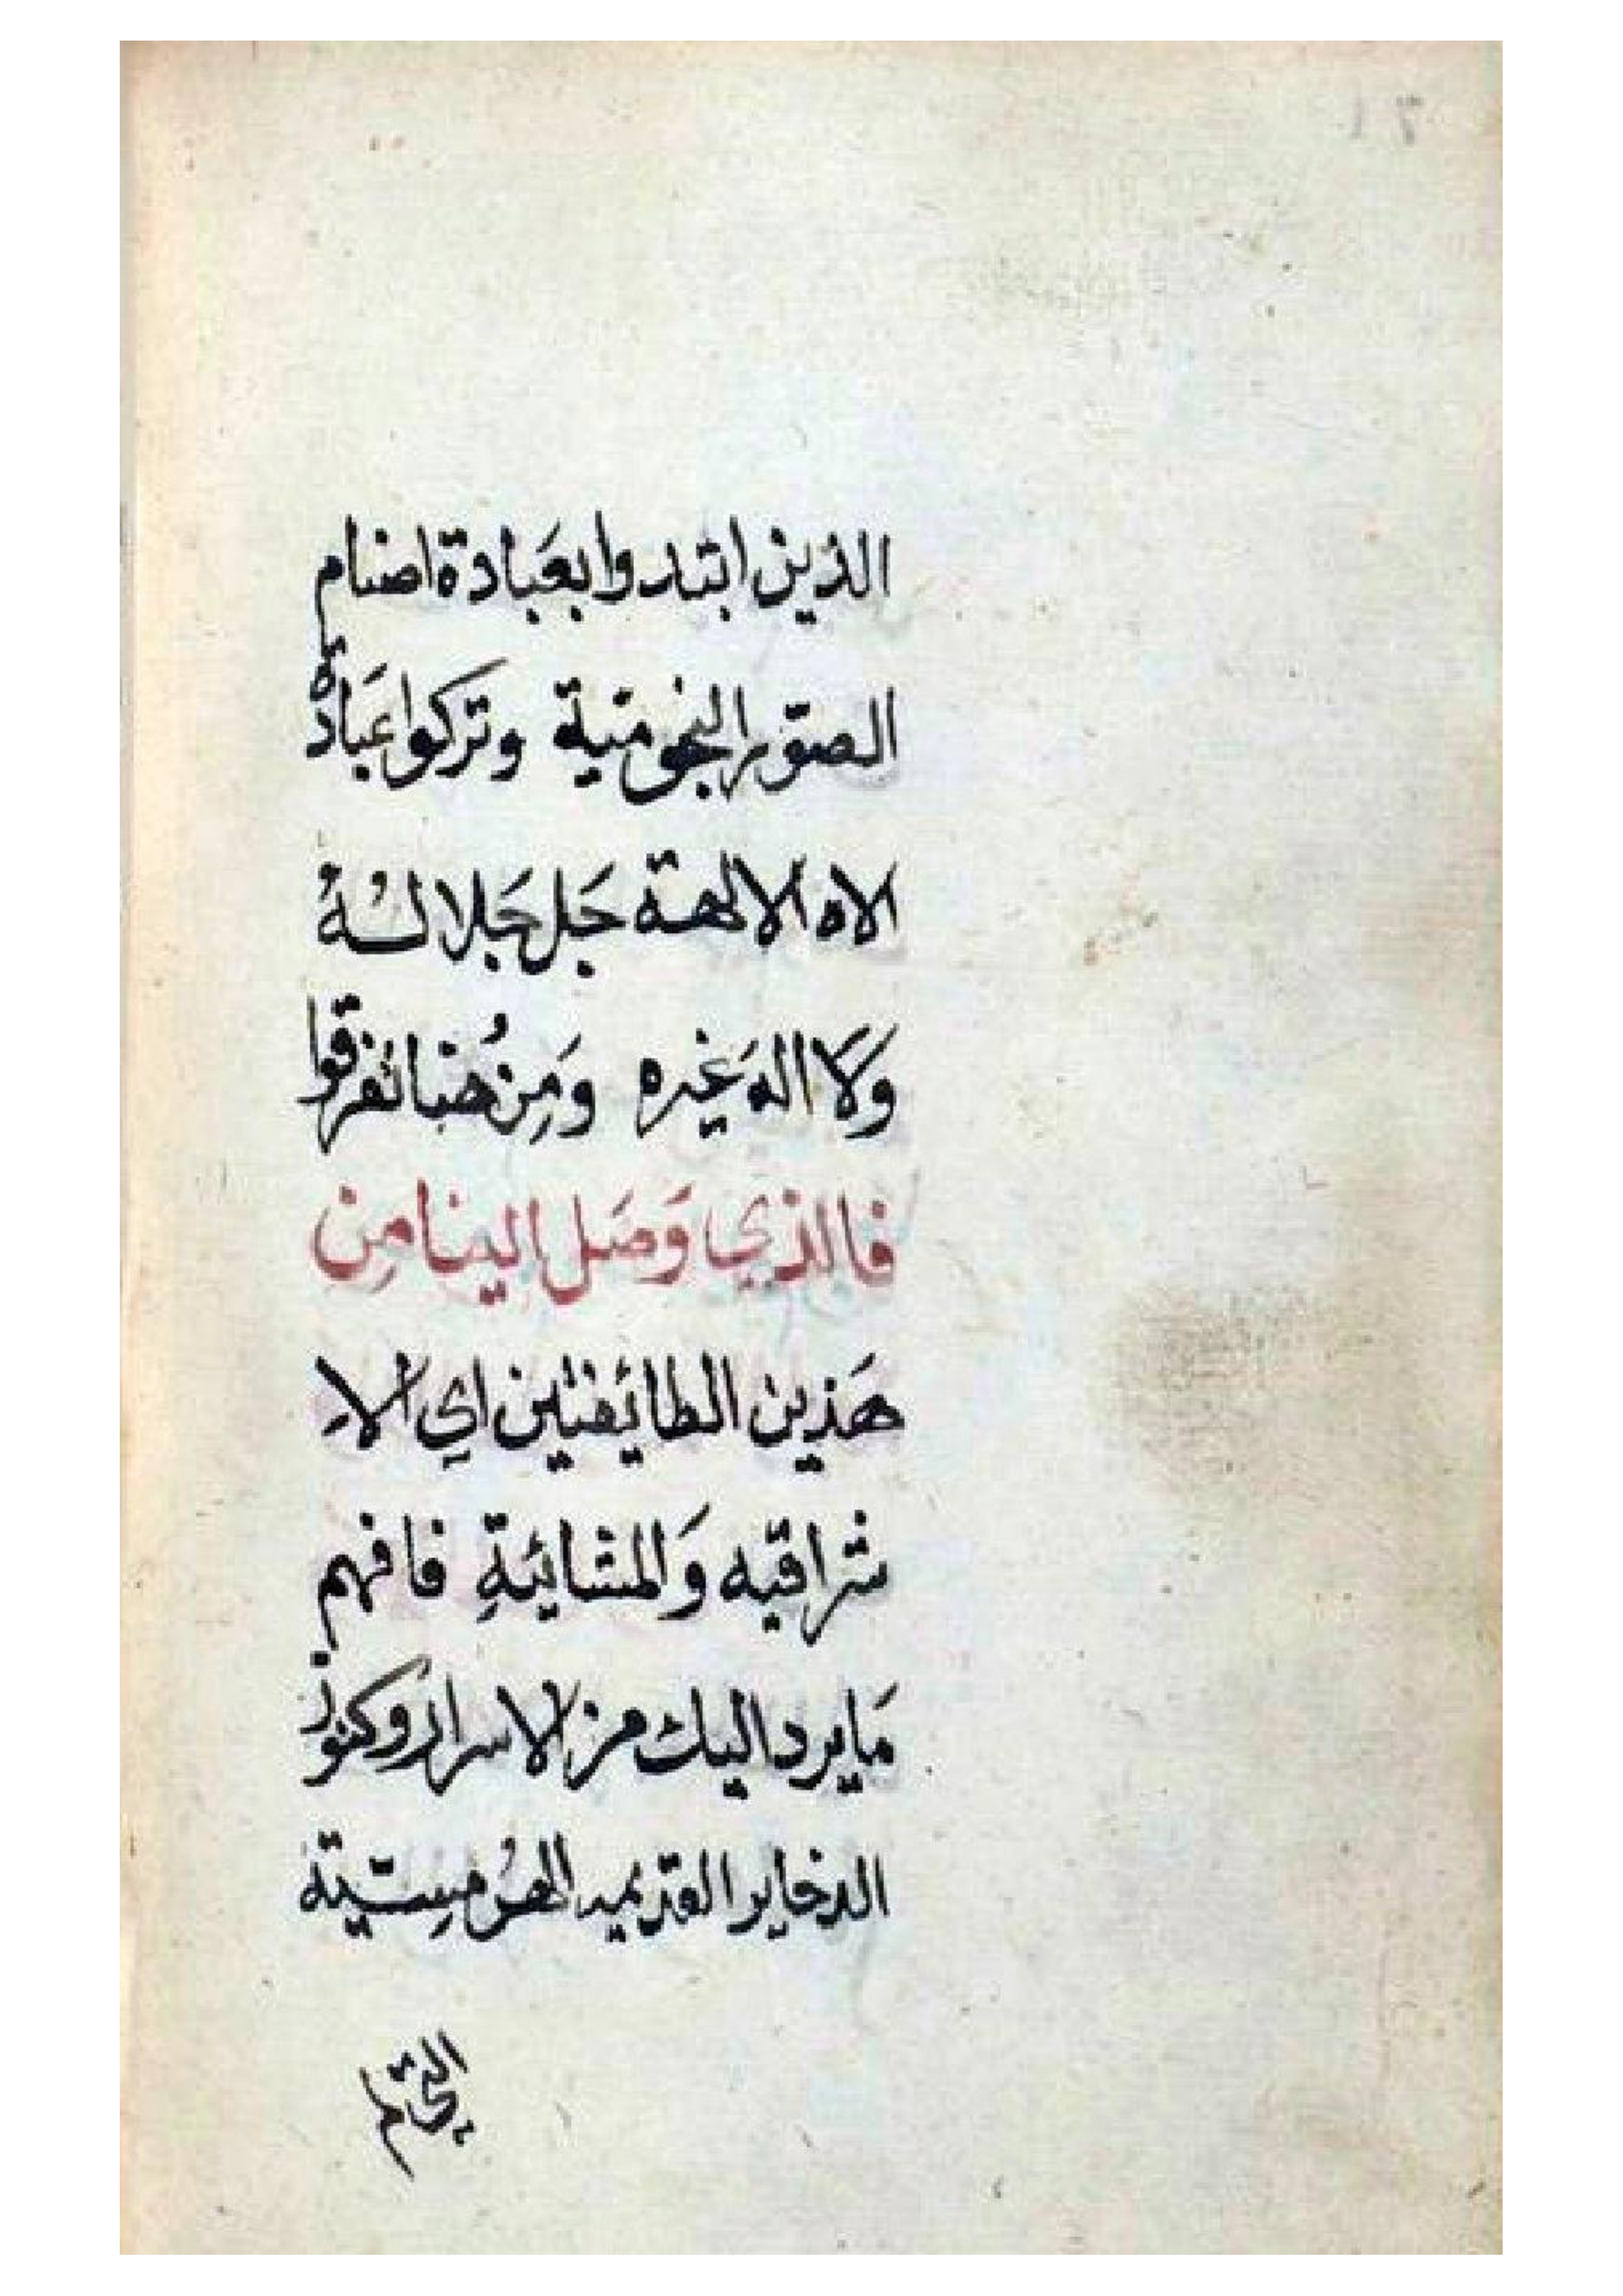 الذين ابتدوا بعَبادة اصنام
الصوّر النجومية وتركوا عبَادة
الاه الالهة جَل جَلالهُ
وَلَا اله غَيره وَمِن هُنا تفرقوا
فالذي وَصَل الينا مِن
هَذين الطائفتين اي الاِ
شراقيه وَالمشائيةِ فافهم
مَا يرد اليك من الاسرار وكنوز
الدخاير القديمه الهُرمِسيّة